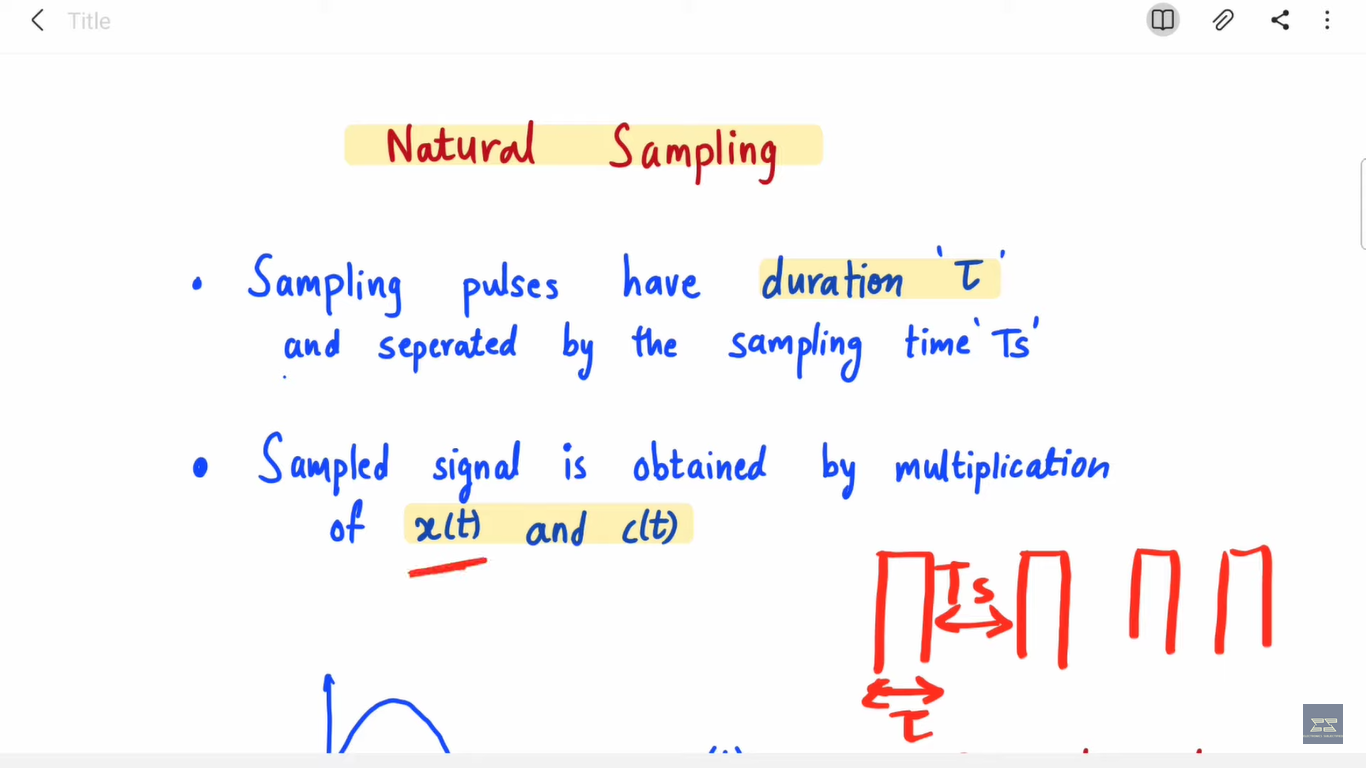 Title
Natural Sampling
• Sampling pulses have duration 'τ'
and seperated by the sampling time 'Ts'
• Sampled signal is obtained by multiplication
of x(t) and c(t)
Ts
τ